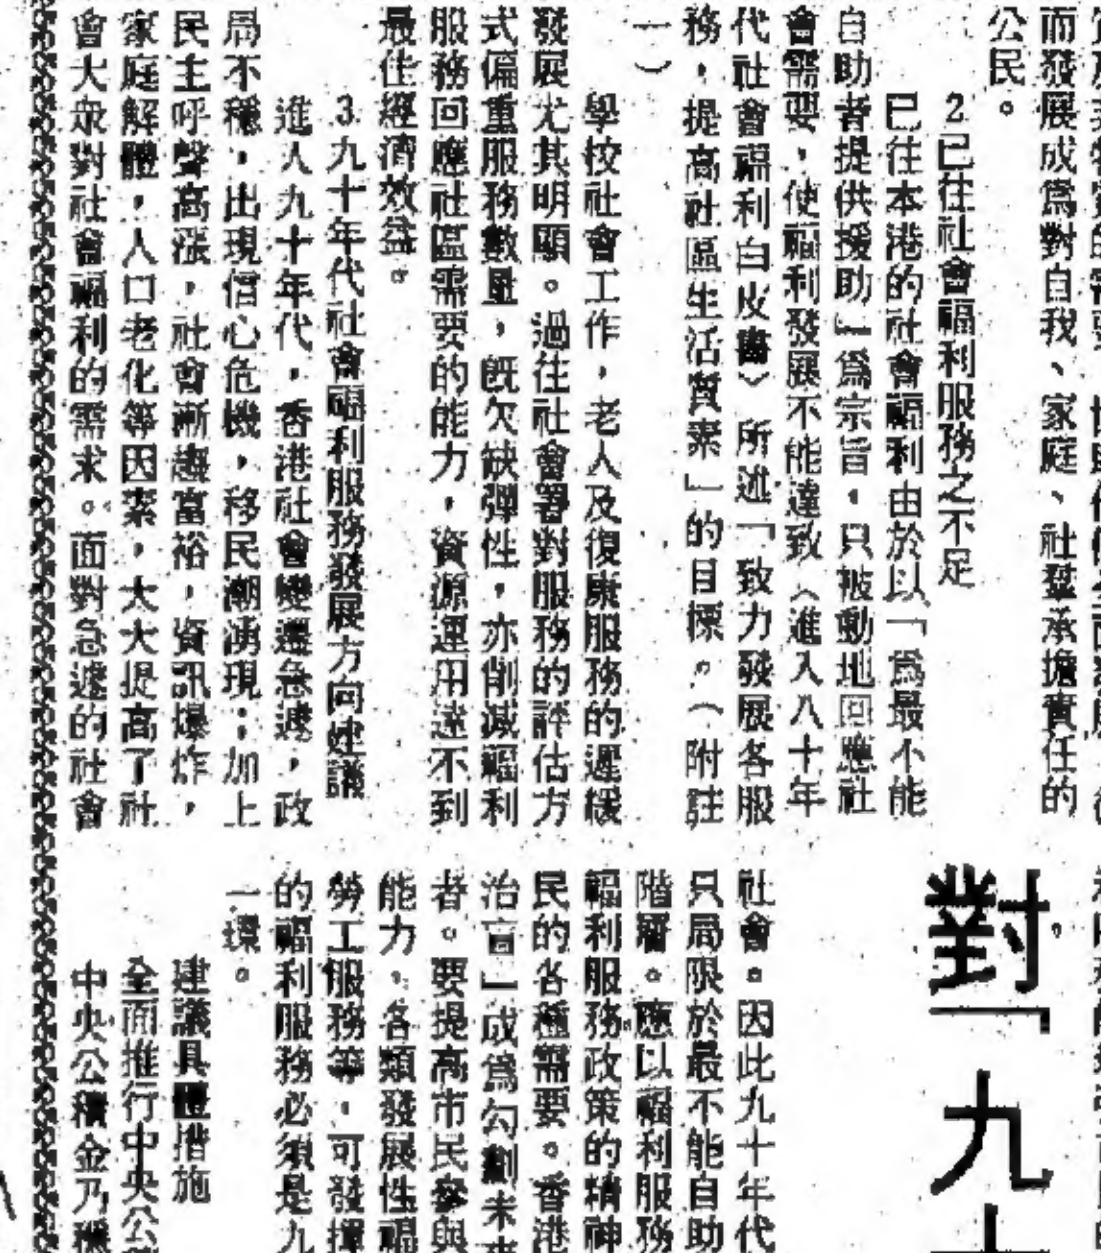 而發展成爲對自我、家庭、社羣承擔責任的
公民。
2已往社會福利服務之不足
已往本港的社會福利由於以「爲最不能
自助者提供援助」爲宗旨,只被動地回應社
會需要,使福利發展不能達致〈進入八十年
代社會福利白皮書〉所述「致力發展各服
務,提高社區生活質素」的目標。(附註
一)
學校社會工作,老人及復康服務的遲緩
發展尤其明顯。過往社會署對服務的評估方
式偏重服務數量,旣欠缺彈性,亦削減福利
服務回應社區需要的能力,資源運用達不到
最佳經濟效益。
3.九十年代社會福利服務發展方向建議
進入九十年代,香港社會變遷急遽,政
局不穩,出現信心危機,移民潮湧現;加上
民主呼聲高漲,社會漸趨富裕,資訊爆炸,
家庭解體,人口老化等因素,大大提高了社
會大衆對社會福利的需求。面對急遽的社會
對「九
社會。因此九十年代
只局限於最不能自助
階層。應以福利服務
福利服務政策的精神
民的各種需要。香港
治盲」成爲勾劃未來
者。要提高市民參與
能力,各類發展性福
勞工服務等,可發揮
的福利服務必須是九
一環。
建議具體措施
全面推行中央公
中央公積金乃